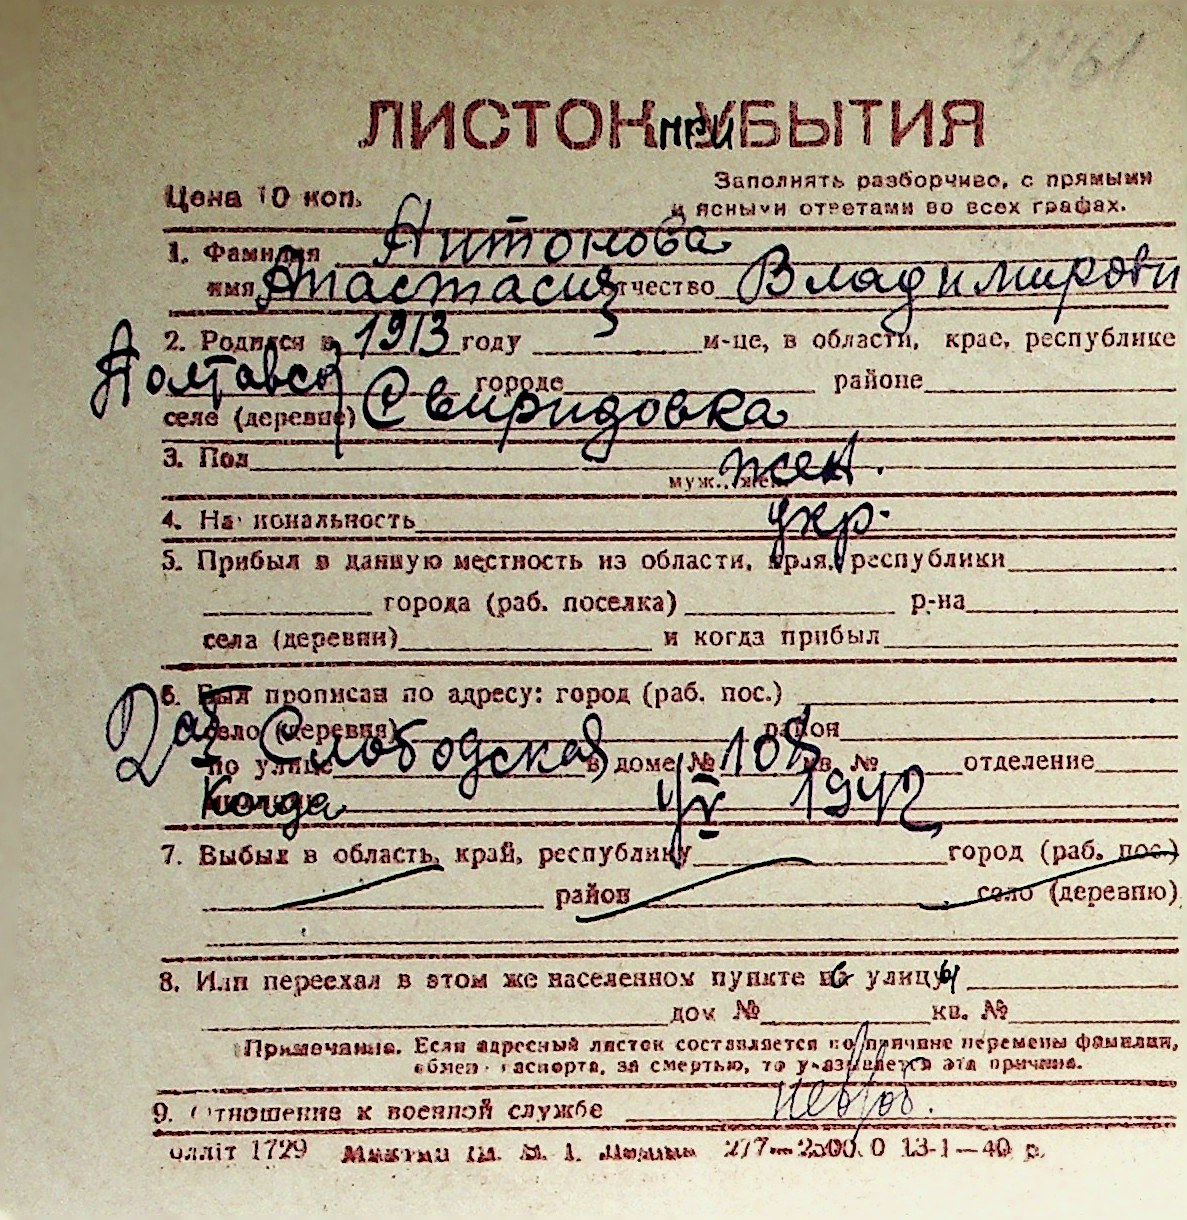 ЛИСТОК ПРИБЫТИЯ
Цена 10 коп.
Заполнять разборчиво, с прямыми
и ясными ответами во всех графах.
1. Фамилия Антонова
имя Анастасия отчество Владимирови
2. Родился в 1913 году м-це, в области, крае, республике
Полтавск городе районе
селе (деревне) Свиридовка
3. Пол жен.
муж., жен.
4. Национальность укр.
5. Прибыл в данную местность из области, края, республики
города (раб. поселка) р-на
села (деревни) и когда прибыл
6. Был прописан по адресу: город (раб. пос.)
село (деревня) район
по улице Слободская в доме № 108 кв. № отделение
Когда 1/V 1942
7. Выбыл в область, край, республику город (раб. пос.)
район село (деревню)
8. Или переехал в этом же населенном пункте с улицы
дом № кв. №
Примечание. Если адресный листок составляется по причине перемены фамилии,
обмен паспорта, за смертью, то указывается эта причина.
9. Отношение к военной службе невоеноб.
1729 277—2500.0 13-1—40 р.